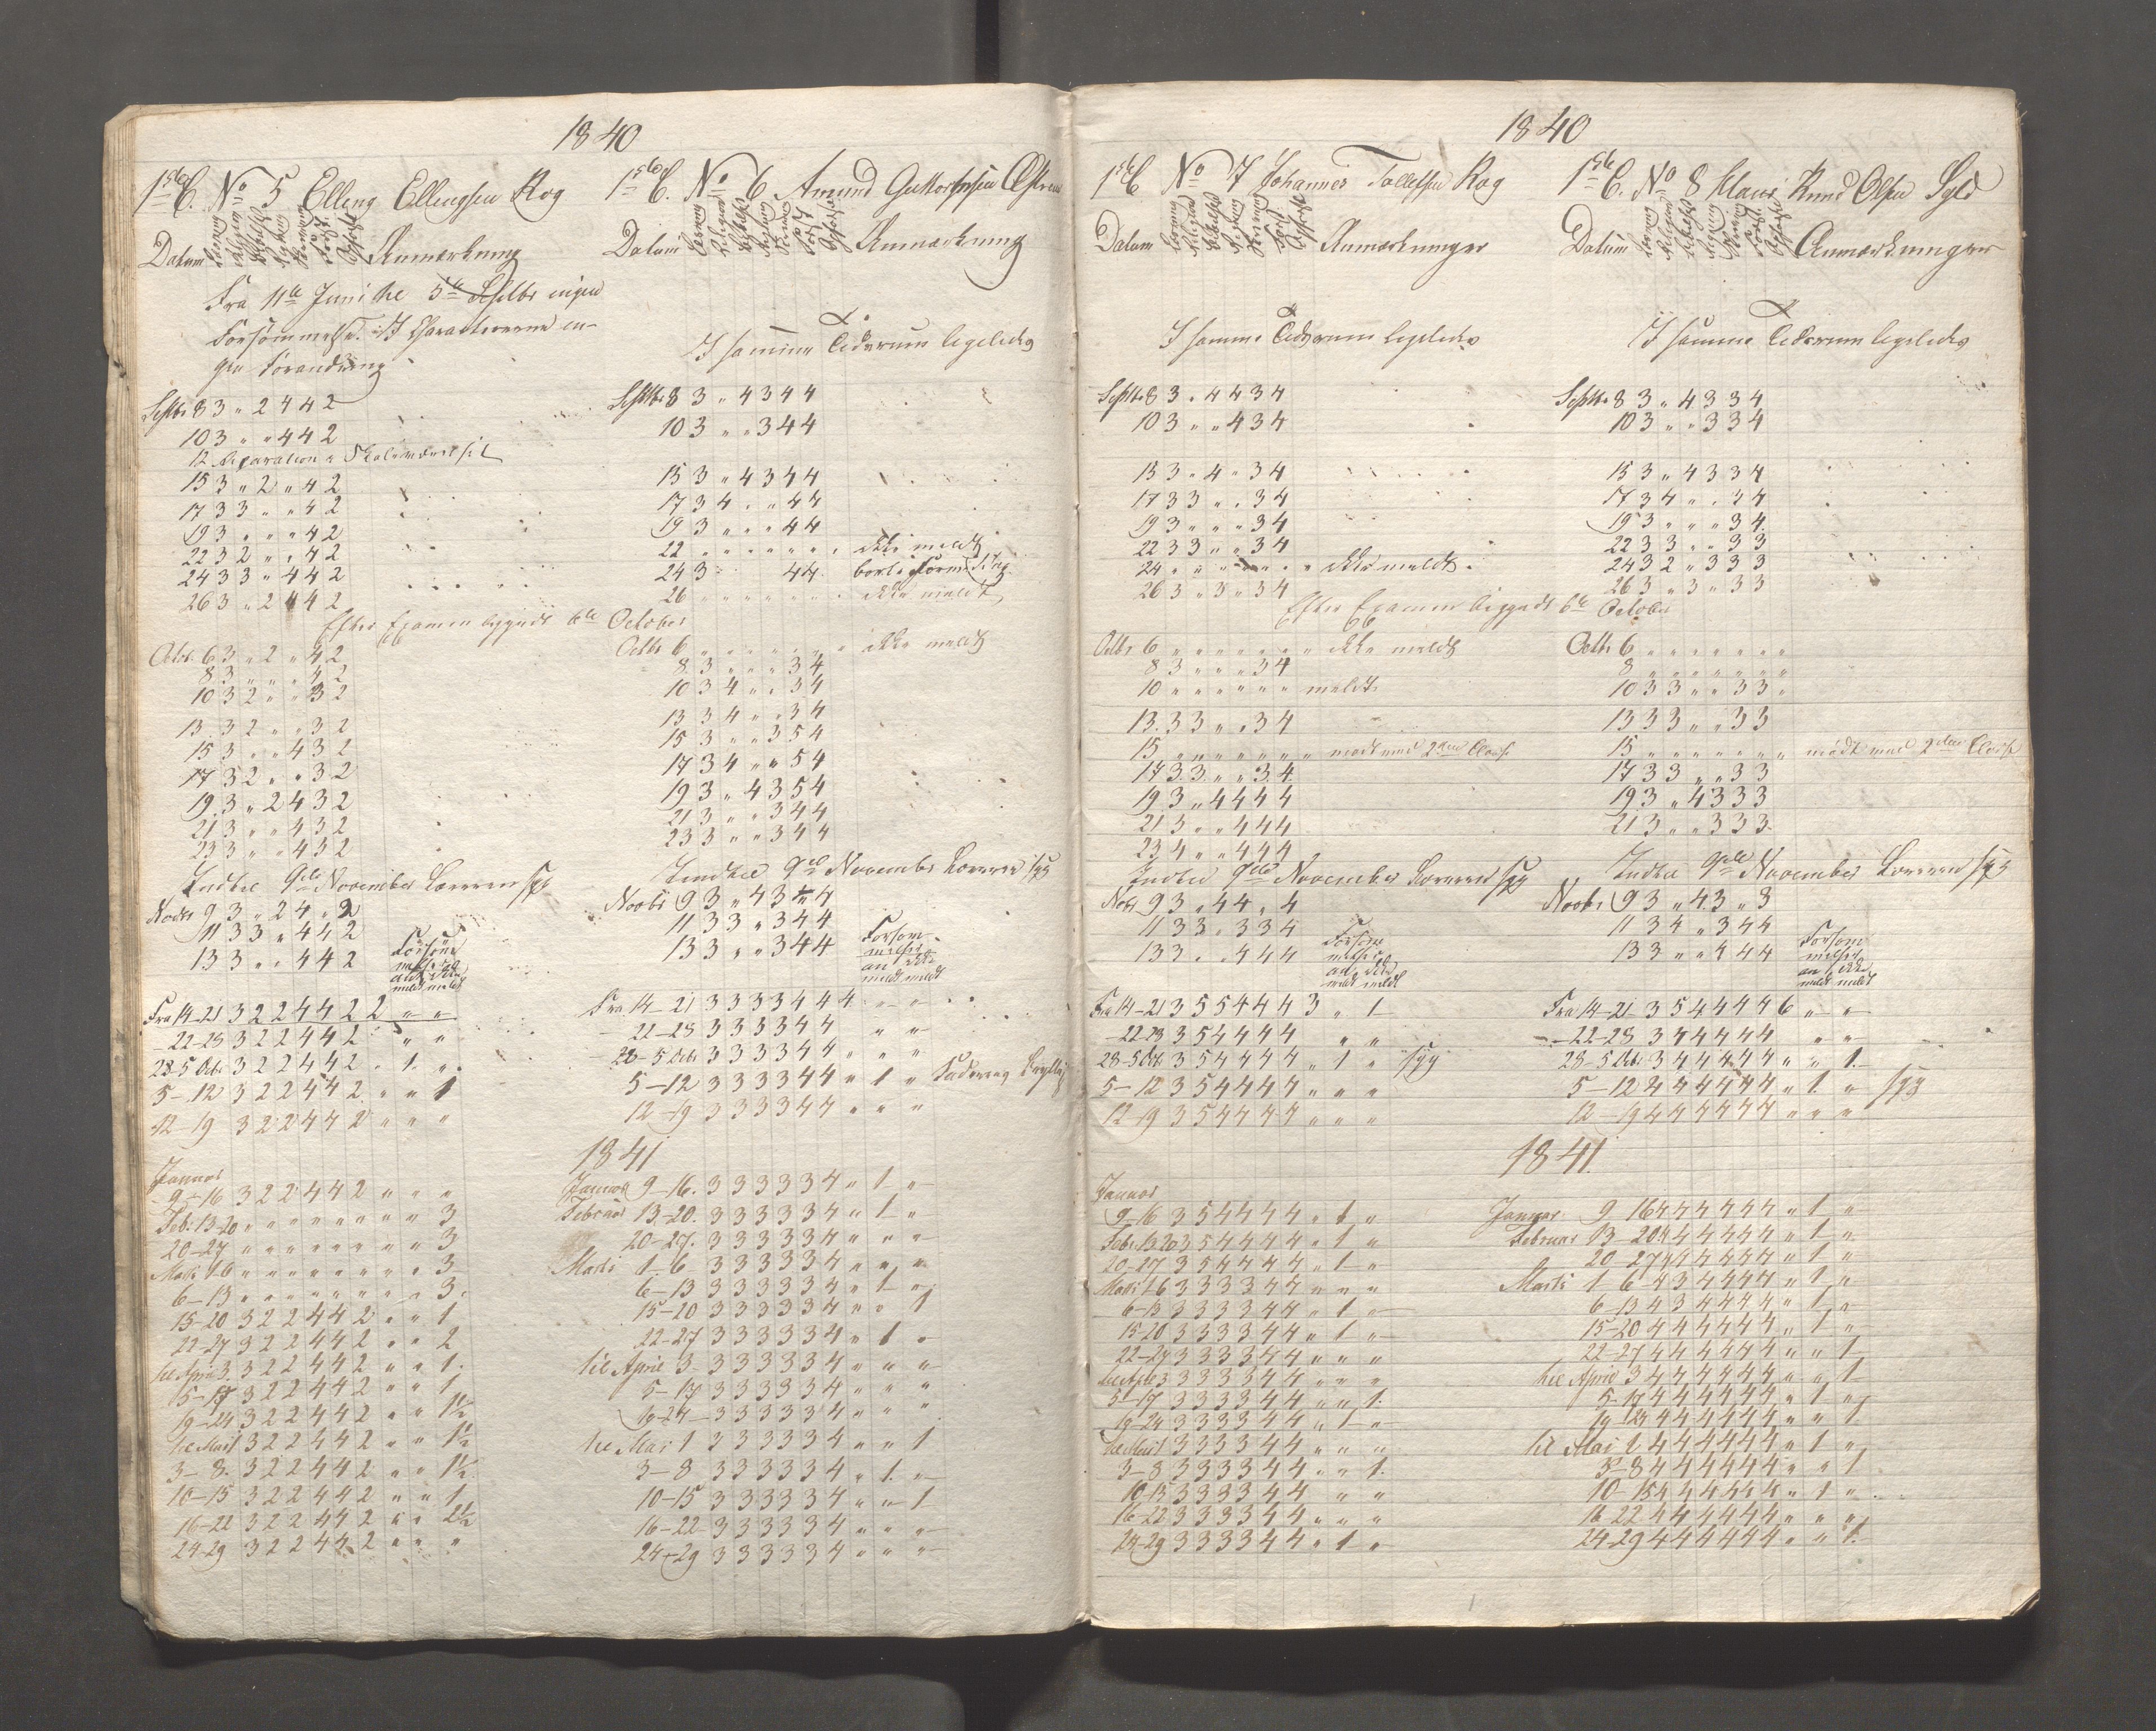 1840
1ste C. No 5 Elling Ellingsen Rog
Datum Læsning Religion Skrivning Regning Sang Anmærkning
Fra 11te Juni til 5te Septbr ingen
Forsømmelse. I Characterene in-
gen Forandring
Septbr 8 3 „ 2 4 4 2
10 3 „ „ 4 4 2
12 Reparation
15 3 „ 2 „ 4 2
17 3 3 „ „ 4 2
19 3 „ „ „ 4 2
22 3 2 „ „ 4 2
24 3 3 „ 4 4 2
26 3 „ 2 4 4 2
Efter Examen begyndt 6te October
Octob. 6 3 „ 2 „ 4 2
8 3 „ „ „ 4 2
10 3 2 „ „ 3 2
13 3 2 „ „ 3 2
15 3 „ „ 4 3 2
17 3 2 „ „ 3 2
19 3 „ 2 4 3 2
21 3 „ „ 4 3 2
23 3 „ „ 4 3 2
Indtil 9de November Læreren syg
Novbr 9 3 „ 2 4 „ 2
11 3 3 „ 4 4 2
13 3 „ „ 4 4 2
Forsøm
melse
an ikke
meldt meldt
Fra 14-21 3 2 2 4 4 2 2 „ „
22-28 3 2 2 4 4 2 „ „
28-5 Dcbr 3 2 2 4 4 2 „ 1 „
5-12 3 2 2 4 4 2 „ „ 1
12-19 3 2 2 4 4 2 „ „ „
Januar
9-16 3 2 2 4 4 2 „ „ „
Feb. 13-20 „ „ „ „ „ „ „ „ 3
20-27 „ „ „ „ „ „ „ „ 3
Marts 1-6 „ „ „ „ „ „ „ „ 3
6-13 „ „ „ „ „ „ „ „ 3
15-20 3 2 2 4 4 2 „ „ 1
22-27 3 2 2 4 4 2 „ „ 2
til April 3 3 2 2 4 4 2 „ „ 1
5-17 3 2 2 4 4 2 „ „ 1
19-24 3 2 2 4 4 2 „ „ 1½
til Mai 1 3 2 2 4 4 2 „ „ 1½
3-8 3 2 2 4 4 2 „ „ 1½
10-15 3 2 2 4 4 2 „ „ 1
16-22 3 2 2 4 4 2 „ „ 2½
24-29 3 2 2 4 4 2 „ „ „
1ste C. No 6 Amund Guttormsen
Datum Læsning Religion Skrivning Regning Sang Anmærkning
I samme Tidsrum ligeledes
Septbr 8 3 „ 4 3 4 4
10 3 „ „ 3 4 4
15 3 „ 4 3 4 4
17 3 4 „ „ 4 4
19 3 „ „ „ 4 4
22 „ „ „ „ „ „ ikke meldt
24 3 4 4
26 „ „ „ „ „ „ ikke meldt
Octbr 6 „ „ „ „ „ „ ikke meldt
8 3 „ „ „ 3 4
10 3 4 „ „ 3 4
13 3 4 „ „ 3 4
15 3 „ „ 3 5 4
17 3 4 „ „ 5 4
19 3 „ 4 3 5 4
21 3 „ „ 3 4 4
23 3 „ „ 3 4 4
Indtil 9de November Læreren syg
Novbr 9 3 „ 4 3 „ 4
11 3 3 „ 3 4 4
13 3 „ „ 3 4 4
Forsøm-
melser
an ikke
meldt meldt
Fra 14-21 3 3 3 3 4 4 4 „ „
22-28 3 3 3 3 4 4 „ „
28-5 Dcbr 3 3 3 3 4 4 „ „ „
5-12 3 3 3 3 4 4 „ 1 „
12-19 3 3 3 3 4 4 „ „ „
1841
Januar 9-16. 3 3 3 3 3 4 „ 1 „
Februar 13-20. 3 3 3 3 3 4 „ 1 „
20-27. 3 3 3 3 3 4 „ „ „
Marts 1-6 3 3 3 3 3 4 „ „ „
6-13 3 3 3 3 3 4 „ 1 „
15-20 3 3 3 3 3 4 „ „ 1
22-27 3 3 3 3 3 4 „ 1 „
til April 3 3 3 3 3 3 4 „ „ „
5-17 3 3 3 3 3 4 „ „ „
19-24 3 3 3 3 3 4 „ „ „
til Mai 1 3 3 3 3 3 4 „ „ 1
3-8 3 3 3 3 3 4 „ 1 „
10-15 3 3 3 3 3 4 „ „ 1
16-22 3 3 3 3 3 4 „ „ „
24-29 3 3 3 3 3 4 „ „ „
1840
1ste C No 7 Johannes Tollefsen Rog
Datum Læsning Religion Skrivning Regning Sang Anmærkninger
I samme Tidsrum ligeledes
Septbr 8 3 „ 4 4 3 4
10 3 „ „ 4 3 4
15 3 „ 4 „ 3 4
17 3 3 „ „ 3 4
19 3 „ „ „ 3 4
22 3 3 „ „ 3 4
24 „ „ „ „ „ „ ikke meldt
26 3 „ 3 „ 3 4
Efter Examen begyndt 6te October
Octbr 6 „ „ „ „ „ „ ikke meldt
8 3 „ „ „ 3 4
10 „ „ „ „ „ „ meldt
13. 3 3 „ „ 3 4
15 „ „ „ „ „ „ mødt med 2den Classe
17 3 3 „ „ 3 4
19 3 „ 4 4 4 4
21 3 „ „ 4 4 4
23 4 „ „ 4 4 4
Indtil 9de November Læreren syg
Nobr 9 3 „ 4 4 „ 4
11 3 3 „ 3 3 4
13 3 „ „ 4 4 4
Forsøm
melser
an ikke
meldt meldt
Fra 14-21 3 5 5 4 4 4 3 „ 1
22-28 3 5 4 4 4 4 „ „
28-5 Dcbr 3 5 4 4 4 4 „ 1 „ syg
5-12 3 5 4 4 4 4 „ „ „
12-19 3 5 4 4 4 4 „ „ „
Januar
9-16 3 5 4 4 4 4 „ 1 „
Febr. 13-20 3 5 4 4 4 4 „ 1 „
20-27 3 5 4 4 4 4 „ 1 „
Marts 1-6 3 3 3 3 4 4 „ „ „
6-13 3 3 3 3 4 4 „ 1 „
15-20 3 3 3 3 4 4 „ 1 „
22-27 3 3 3 3 4 4 „ „ „
til April 3 3 3 3 3 4 4 „ „ „
5-17 3 3 3 3 4 4 „ „ 1.
19-24 3 3 3 3 4 4 „ 1 „
til Mai 1 3 3 3 3 4 4 „ „ „
3-8 3 3 3 3 4 4 „ „ 1.
10-15 3 3 3 3 4 4 „ „
16-22 3 3 3 3 4 4 „ „ „
24-29 3 3 3 3 4 4 „ 1 „
1ste C. No 8 Knud Olsen
Datum Læsning Religion Skrivning Regning Sang Anmærkninger
I samme Tidsrum ligeledes
Septbr 8 3 „ 4 3 3 4
10 3 „ „ 3 3 4
15 3 „ 4 3 3 4
17 3 4 „ „ 3 4
19 3 „ „ „ 3 4
22 3 3 „ „ 3 3
24 3 2 „ 3 3 3
26 3 „ 3 „ 3 3
Octbr 6 „ „ „ „ „ „ „
8 „ „ „ „ „ „ „
10 3 3 „ „ 3 3 „
13 3 3 „ „ 3 3
15 „ „ „ „ „ „ mødt med 2den Classe
17 3 3 „ „ 3 3
19 3 „ 4 3 3 3
21 3 „ „ 3 3 3
Indtil 9de November Læreren syg
Novbr 9 3 „ 4 3 „ 3
11 3 4 „ 3 4 4
13 3 „ „ 4 4 4
Forsøm
melser
an ikke
meldt meldt
Fra 14-21 3 5 4 4 4 4 6 „ „
22-28 3 4 4 4 4 4 „ „
28-5 Dcbr 3 4 4 4 4 4 „ „ 1.
5-12 4 4 4 4 4 4 „ 1 „ syg
12-19 4 4 4 4 4 4 „ „ „
1841
Januar 9-16 4 4 4 4 4 4 „ 1 „
Februar 13-20 4 4 4 4 4 4 „ 1 „
20-27 4 4 4 4 4 4 „ 1 „
Marts 1-6 4 3 4 4 4 4 „ 1 „
6-13 4 3 4 4 4 4 „ 1 „
15-20 4 4 4 4 4 4 „ 1 „
22-27 4 4 4 4 4 4 „ „ 1
til April 3 4 4 4 4 4 4 „ „ 1
5-17 4 4 4 4 4 4 „ 1 „
19-24 4 4 4 4 4 4 „ „ 1.
til Mai 1 4 4 4 4 4 4 „ 1 „
3-8 4 4 4 4 4 4 „ „ 1
10-15 4 4 4 4 4 4 „ 1 „
16-22 4 4 4 4 4 4 „ „ „
24-29 4 4 4 4 4 4 „ „ 1.